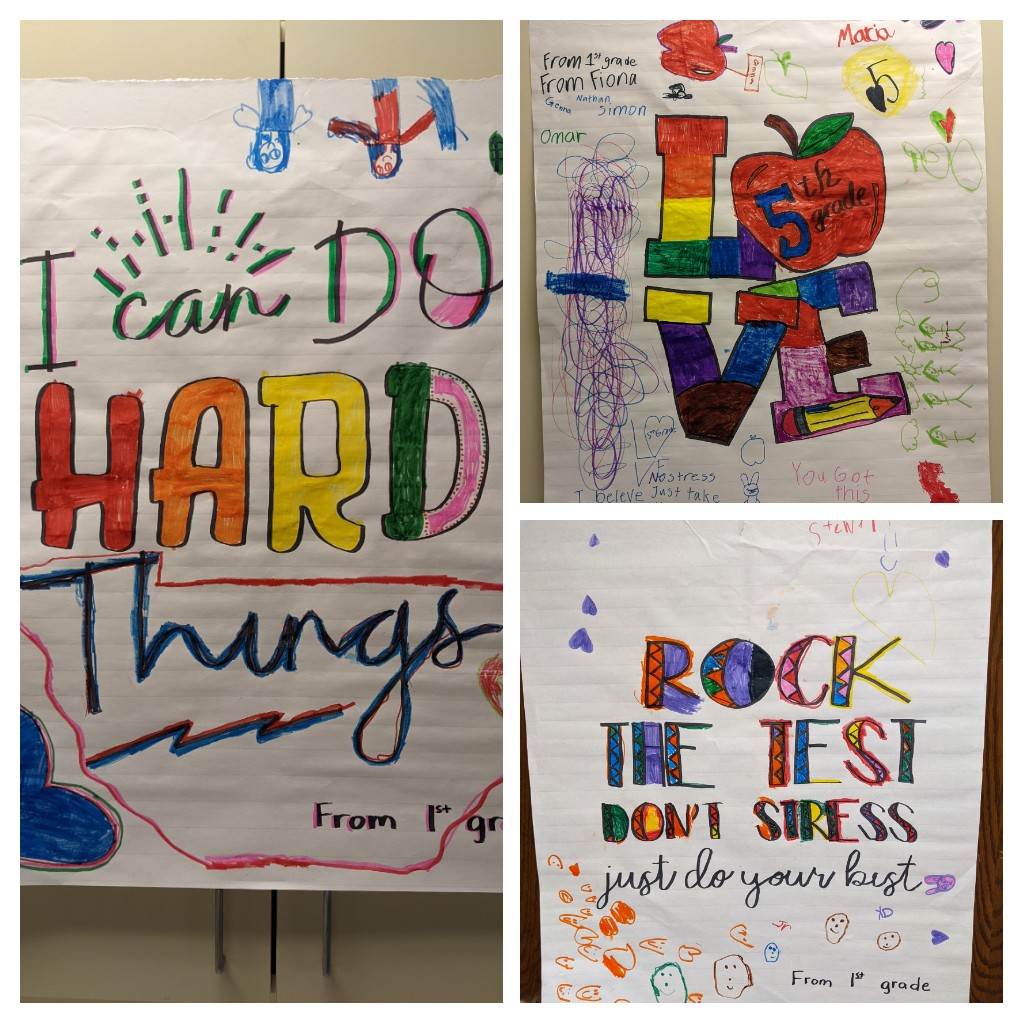 I can DO
HARD
Things
From 1st gr
From 1st grade
From Fiona
Genna Nathan Simon
Omar
Maria
5
LOVE
5th
grade
5th Grade
No stress
I beleve Just take
You Got
this
ROCK
THE TEST
DON'T STRESS
just do your best
From 1st grade